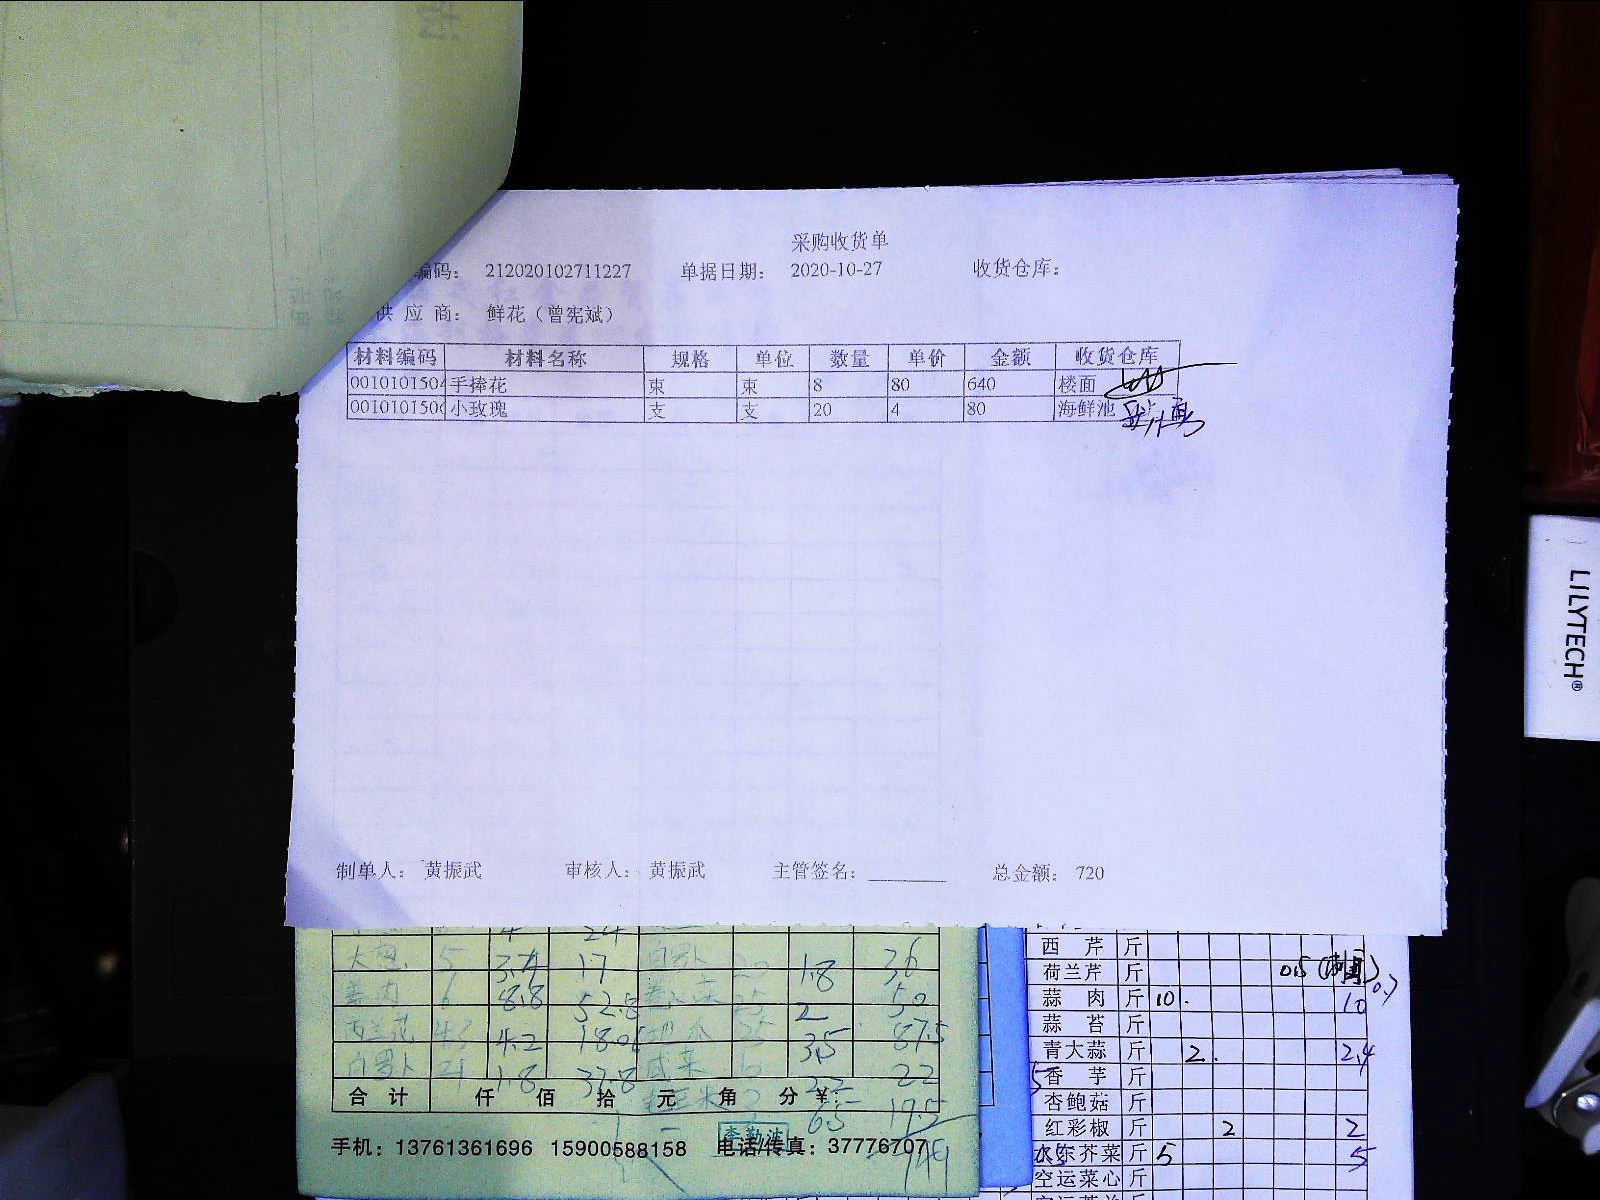 采购收货单
编码： 212020102711227 单据日期： 2020-10-27 收货仓库：
供 应 商： 鲜花（曾宪斌）
材料编码 材料名称 规格 单位 数量 单价 金额 收货仓库
0010101504 手捧花 束 束 8 80 640 楼面
001010150 小玫瑰 支 支 20 4 80 海鲜池
制单人： 黄振武 审核人： 黄振武 主管签名： 总金额： 720
大葱 5 3.4 17 白罗卜 1.8 36
姜肉 6 8.8 52.8 2 50
西兰花 4.2 3.5 87.5
白罗卜 21 1.8 37.8 咸菜 22
合 计 仟 佰 拾 元 角 分 ¥:
6.5 19.5
李勤波
手机：13761361696 15900588158 电话/传真：37776707
西 芹 斤
荷兰芹 斤 0.5
蒜 肉 斤 10 10
蒜 苔 斤
青大蒜 斤 2 2.4
香 芋 斤
杏鲍菇 斤
红彩椒 斤 2 2
水东芥菜 斤 5 5
空运菜心 斤
LILYTECH®